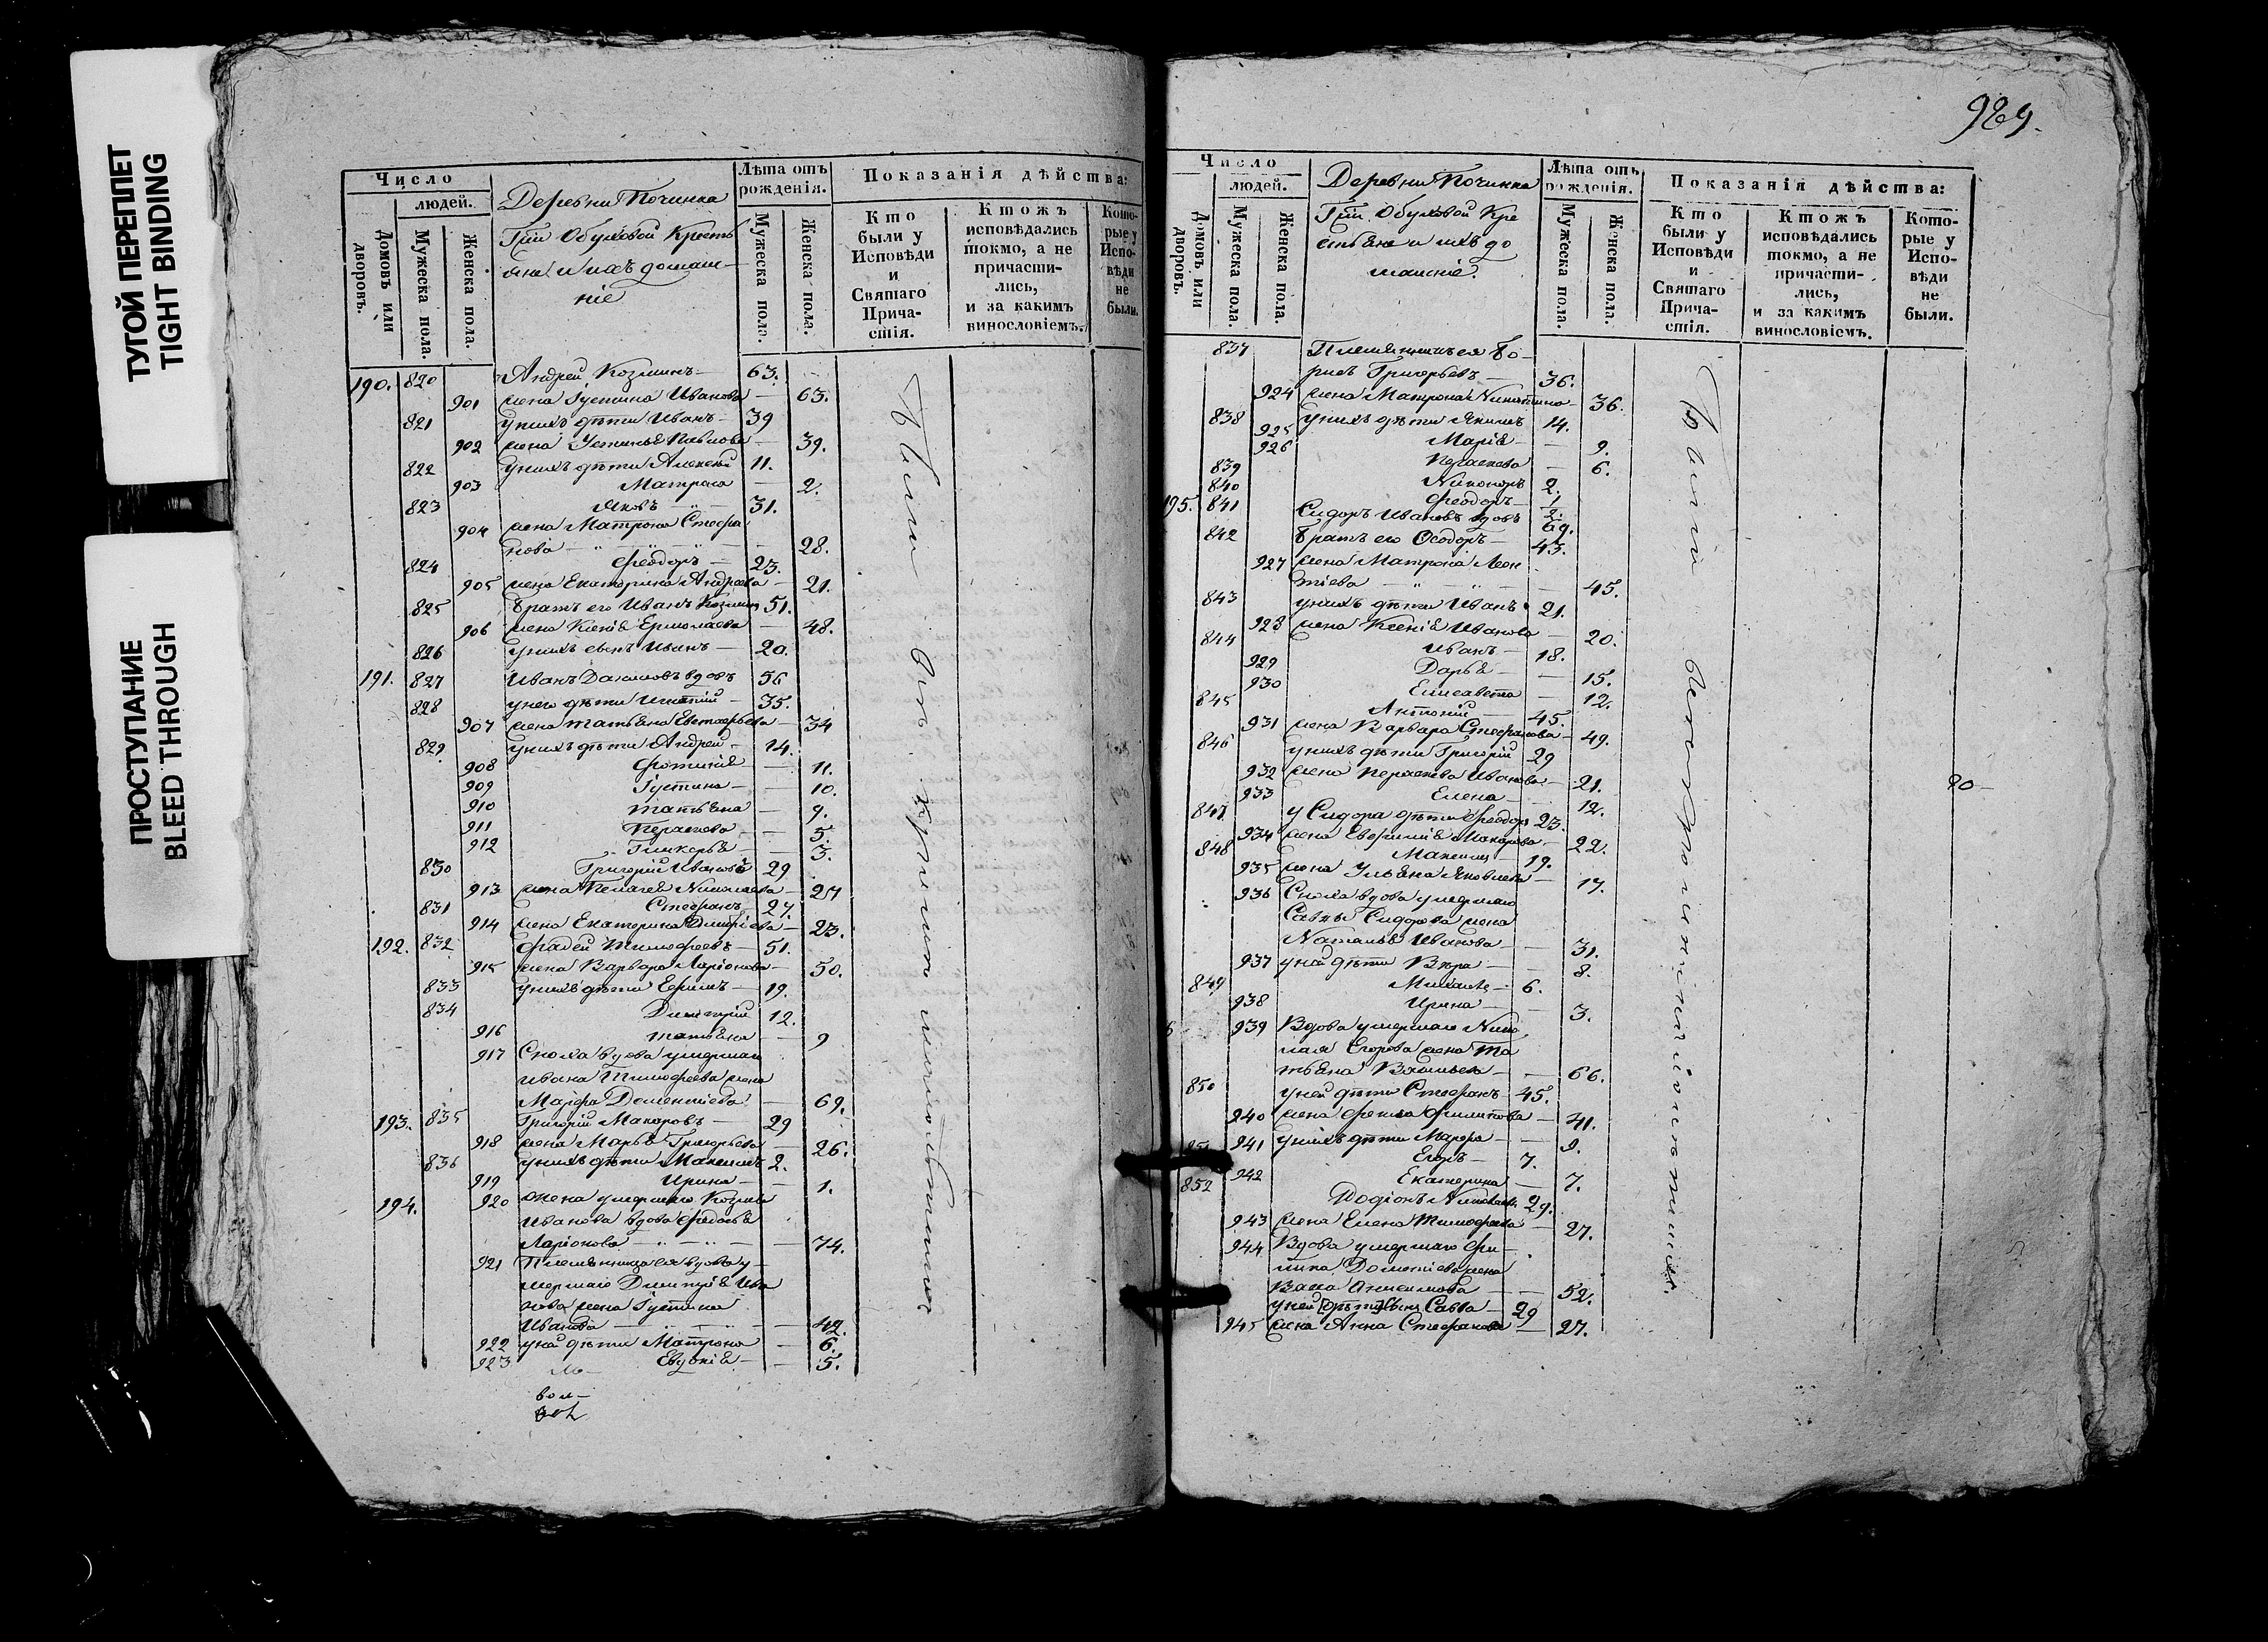 ТУГОЙ ПЕРЕПЛЕТ
TIGHT BINDING
ПРОСТУПАНИЕ
BLEED THROUGH
Число
людей.
Домовъ или дворовъ.
Мужеска пола.
Женска пола.
Деревни Починка
Гжи Обуховой Кресть
яне и ихъ домаш-
ніе
Лѣта отъ рожденія.
Мужеска пола.
Женска пола.
Показанія дѣйства:
Кто были у Исповѣди и Святаго Прича-стія.
Ктожъ исповѣдались токмо, а не причасти-лись, и за какимъ винословіемъ.
Кото-рые у Испо-вѣди не были.
190. 820 Андрей Козминъ 63.
901 жена Іустина Иванова 63.
821 у нихъ дѣти Иванъ 39
902 жена Устинья Павлова 39.
822 у нихъ дѣти Алексѣй 11.
903 Матрона 2.
823 Яковъ 31.
904 жена Матрона Стефа
нова 28.
824 Феодоръ 23.
905 жена Екатерина Андреева 21.
825 братъ его Иванъ Козминъ 51.
906 жена Ксенія Ермолаева 48.
826 у нихъ сынъ Иванъ 20.
191. 827 Иванъ вдовъ 56
828 у него дѣти 35.
907 жена Татьяна 34
829. у нихъ дѣти Андрей 14.
908 Фотинія 11.
909 Іустина 10.
910 Татьяна 9.
911 Параскева 5.
912 3.
830 Григорій Ивановъ 29
913 жена Пелагея Николаева 27
831 Стефанъ 27.
914 жена Екатерина Димитріева 23.
192. 832 Фадей Тимофеевъ 51.
915 жена Варвара Ларіонова 50.
833 у нихъ дѣти Ефимъ 19.
834 Димитрій 12.
916 Татьяна 9
917 Сноха вдова умершаго
Ивана Тимофеева жена
Марфа 69.
193. 835 Григорій Макаровъ 29
918 жена Марья Григорьева 26.
836 у нихъ дѣти Максимъ 2.
919 Ирина 1.
194. 920 жена умершаго Козмы
Иванова вдова Федосья
Ларіонова 74.
921 Племянница ея вдова у
мершаго Димитрія Ива
нова жена Іустина
Иванова 42.
922 у ней дѣти Матрона 6.
923 Евдокія 5.
Были
989.
Число
людей.
Домовъ или дворовъ.
Мужеска пола.
Женска пола.
Деревни Починка
Гжи Обуховой Кре
стьяне и ихъ до
машніе.
Лѣта отъ рожденія.
Мужеска пола.
Женска пола.
Показанія дѣйства:
Кто были у Исповѣди и Святаго Прича-стія.
Ктожъ исповѣдались токмо, а не причасти-лись, и за какимъ винословіемъ.
Кото-рые у Испо-вѣди не были.
837 Племянникъ ея Бо-
рисъ Григорьевъ 36.
924 жена Матрона 36.
838 у нихъ дѣти Якимъ 14.
925 Марія 9.
926 Параскева 6.
839 Никоноръ 2.
840 Феодоръ
195. 841 Сидоръ Ивановъ вдовъ 69.
842 братъ его Феодоръ 43.
927 жена Матрона Леон
тіева 45.
843 у нихъ дѣти Иванъ 21.
928 жена Ксенія Иванова 20.
844 Иванъ 18.
929 Дарья 15.
930 Елисавета 12.
845 Антоній 45.
931 жена Варвара Стефанова 49.
846 у нихъ дѣти Григорій 29
932 жена Параскева Иванова 21.
933 Елена 12.
847 у Сидора дѣти Феодоръ 23.
934 жена Евфимія Макарова 22.
848 Максимъ 19.
935 жена Ульяна Яковлева 17.
936 Сноха вдова умершаго
Савы Сидорова жена
Наталья Иванова 31.
937 у ней дѣти Вера 8.
849 Михаилъ 6.
938 Ирина 3.
939 Вдова умершаго Нико
лая Егорова жена Та
тьяна Васильева 66.
850 у ней дѣти Стефанъ 45.
940 жена Филипова 41.
941 у нихъ дѣти Марфа 9.
Егоръ 7.
942 Екатерина 7.
852 Родіонъ Николаевъ 29.
943 жена Елена Тимофеева 27.
944 Вдова умершаго Фи-
липа жена
Васса Анисимова 52.
у ней дѣти сынъ Савва 29
945 жена Анна Стефанова 27.
Были
90